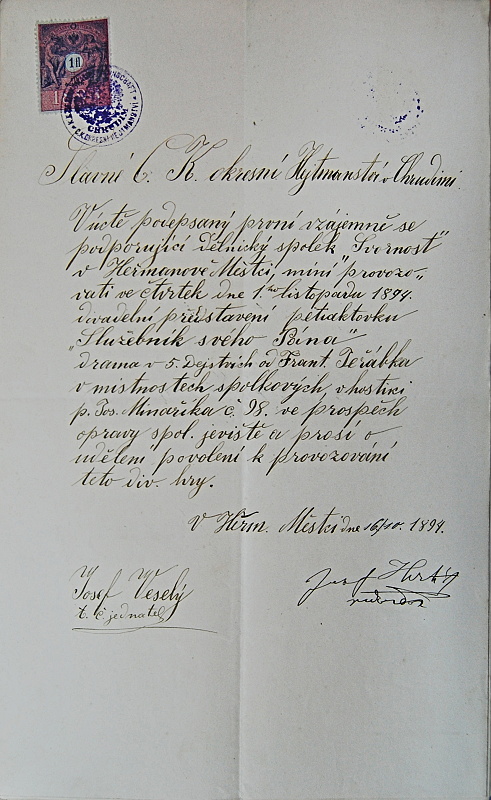 1 fl
CHRUDIM
C.K. OKRESNÍ HEJTMANSTVÍ
Slavné C. K. okresní Hejtmanství v Chrudimi
V úctě podepsaný první vzájemně se
podporující dělnický spolek "Svornost"
v Heřmanově Městci, míní provozo-
vati ve čtvrtek dne 1.ho listopadu 1894.
divadelní představení pětiaktovku
"Služebník svého Pána"
drama v 5. Dejstvích od Frant. Jeřábka
v místnostech spolkových, v hostinci
p. Jos. Minaříka č. 98. ve prospěch
opravy spol. jeviště a prosí o
udělení povolení k provozování
této div. hry.
V Heřm. Městci dne 16/10. 1894.
Josef Veselý
t. č. jednatel
Josef